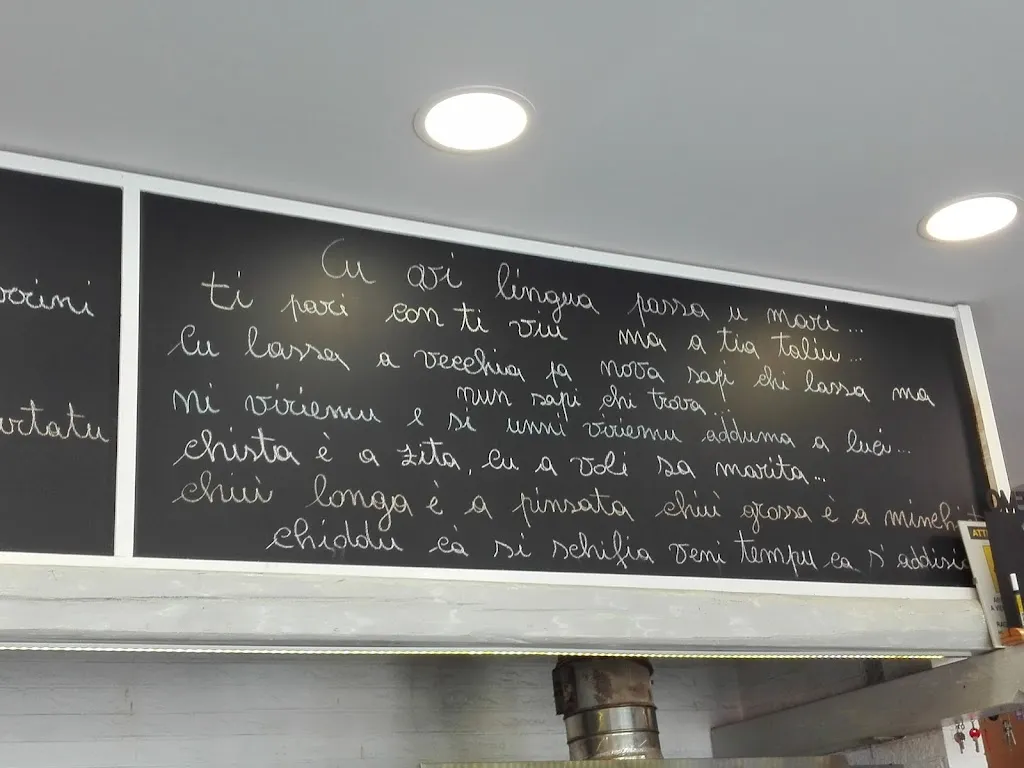 Cu avi lingua passa u mari...
ti pari con ti viu ma a tia taliu...
Cu lassa a vecchia pa nova sapi chi lassa ma
nun sapi chi trova...
Ni viriemu e si unni viriemu adduma a luci...
chista è a zita, cu a voli sa marita...
chiui longa è a pinsata chiù grossa è a
chiddu cà si schifia veni tempu ca s'addisia
ATT